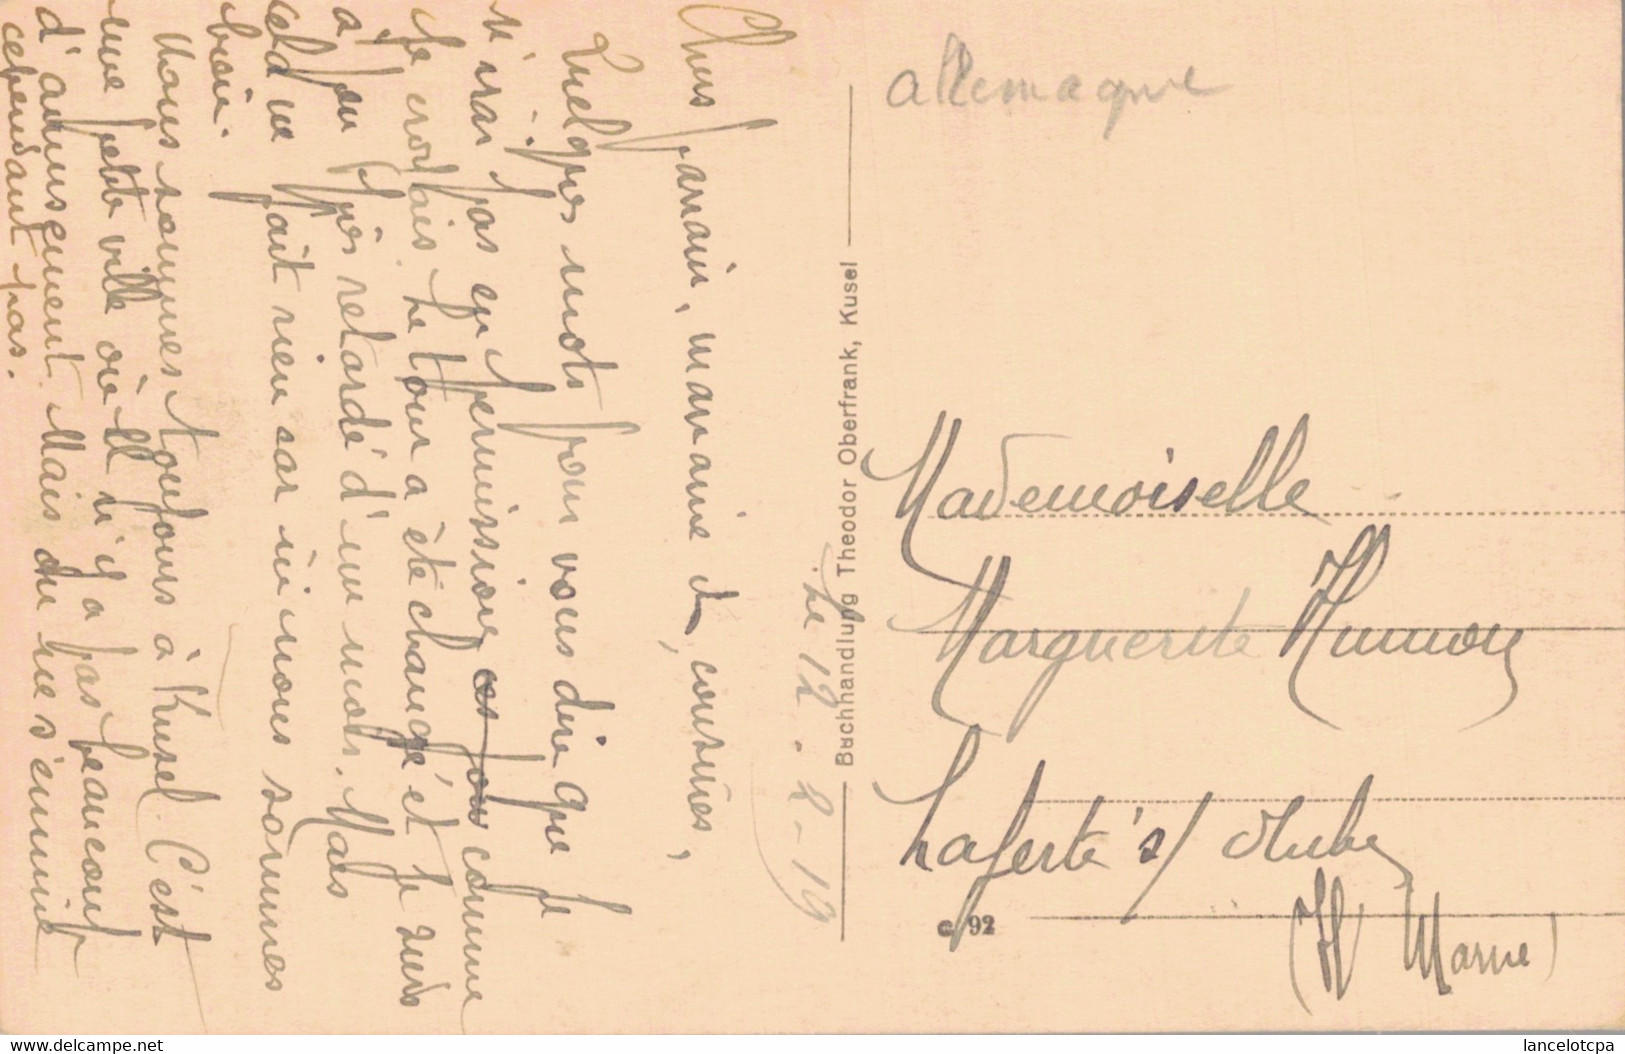 Allemagne
Le 12-2-19
Chers parrain, marraine et cousines,
Quelques mots pour vous dire que je
n'irai pas en permission ces jou comme
je croyais. Le tour a été changé et je suis
à peu près retardé d'un mois. Mais
cela ne fait rien car ici nous sommes
bien.
Nous sommes toujours à Kusel. C'est
une petite ville où il n'y a pas beaucoup
d'amusement. Mais on ne s'ennuie
cependant pas.
Buchhandlung Theodor Oberfrank, Kusel
Mademoiselle
Marguerite
Laferté s/ Aube
(Hte Marne)
c 92
www.delcampe.net
lancelotcpa